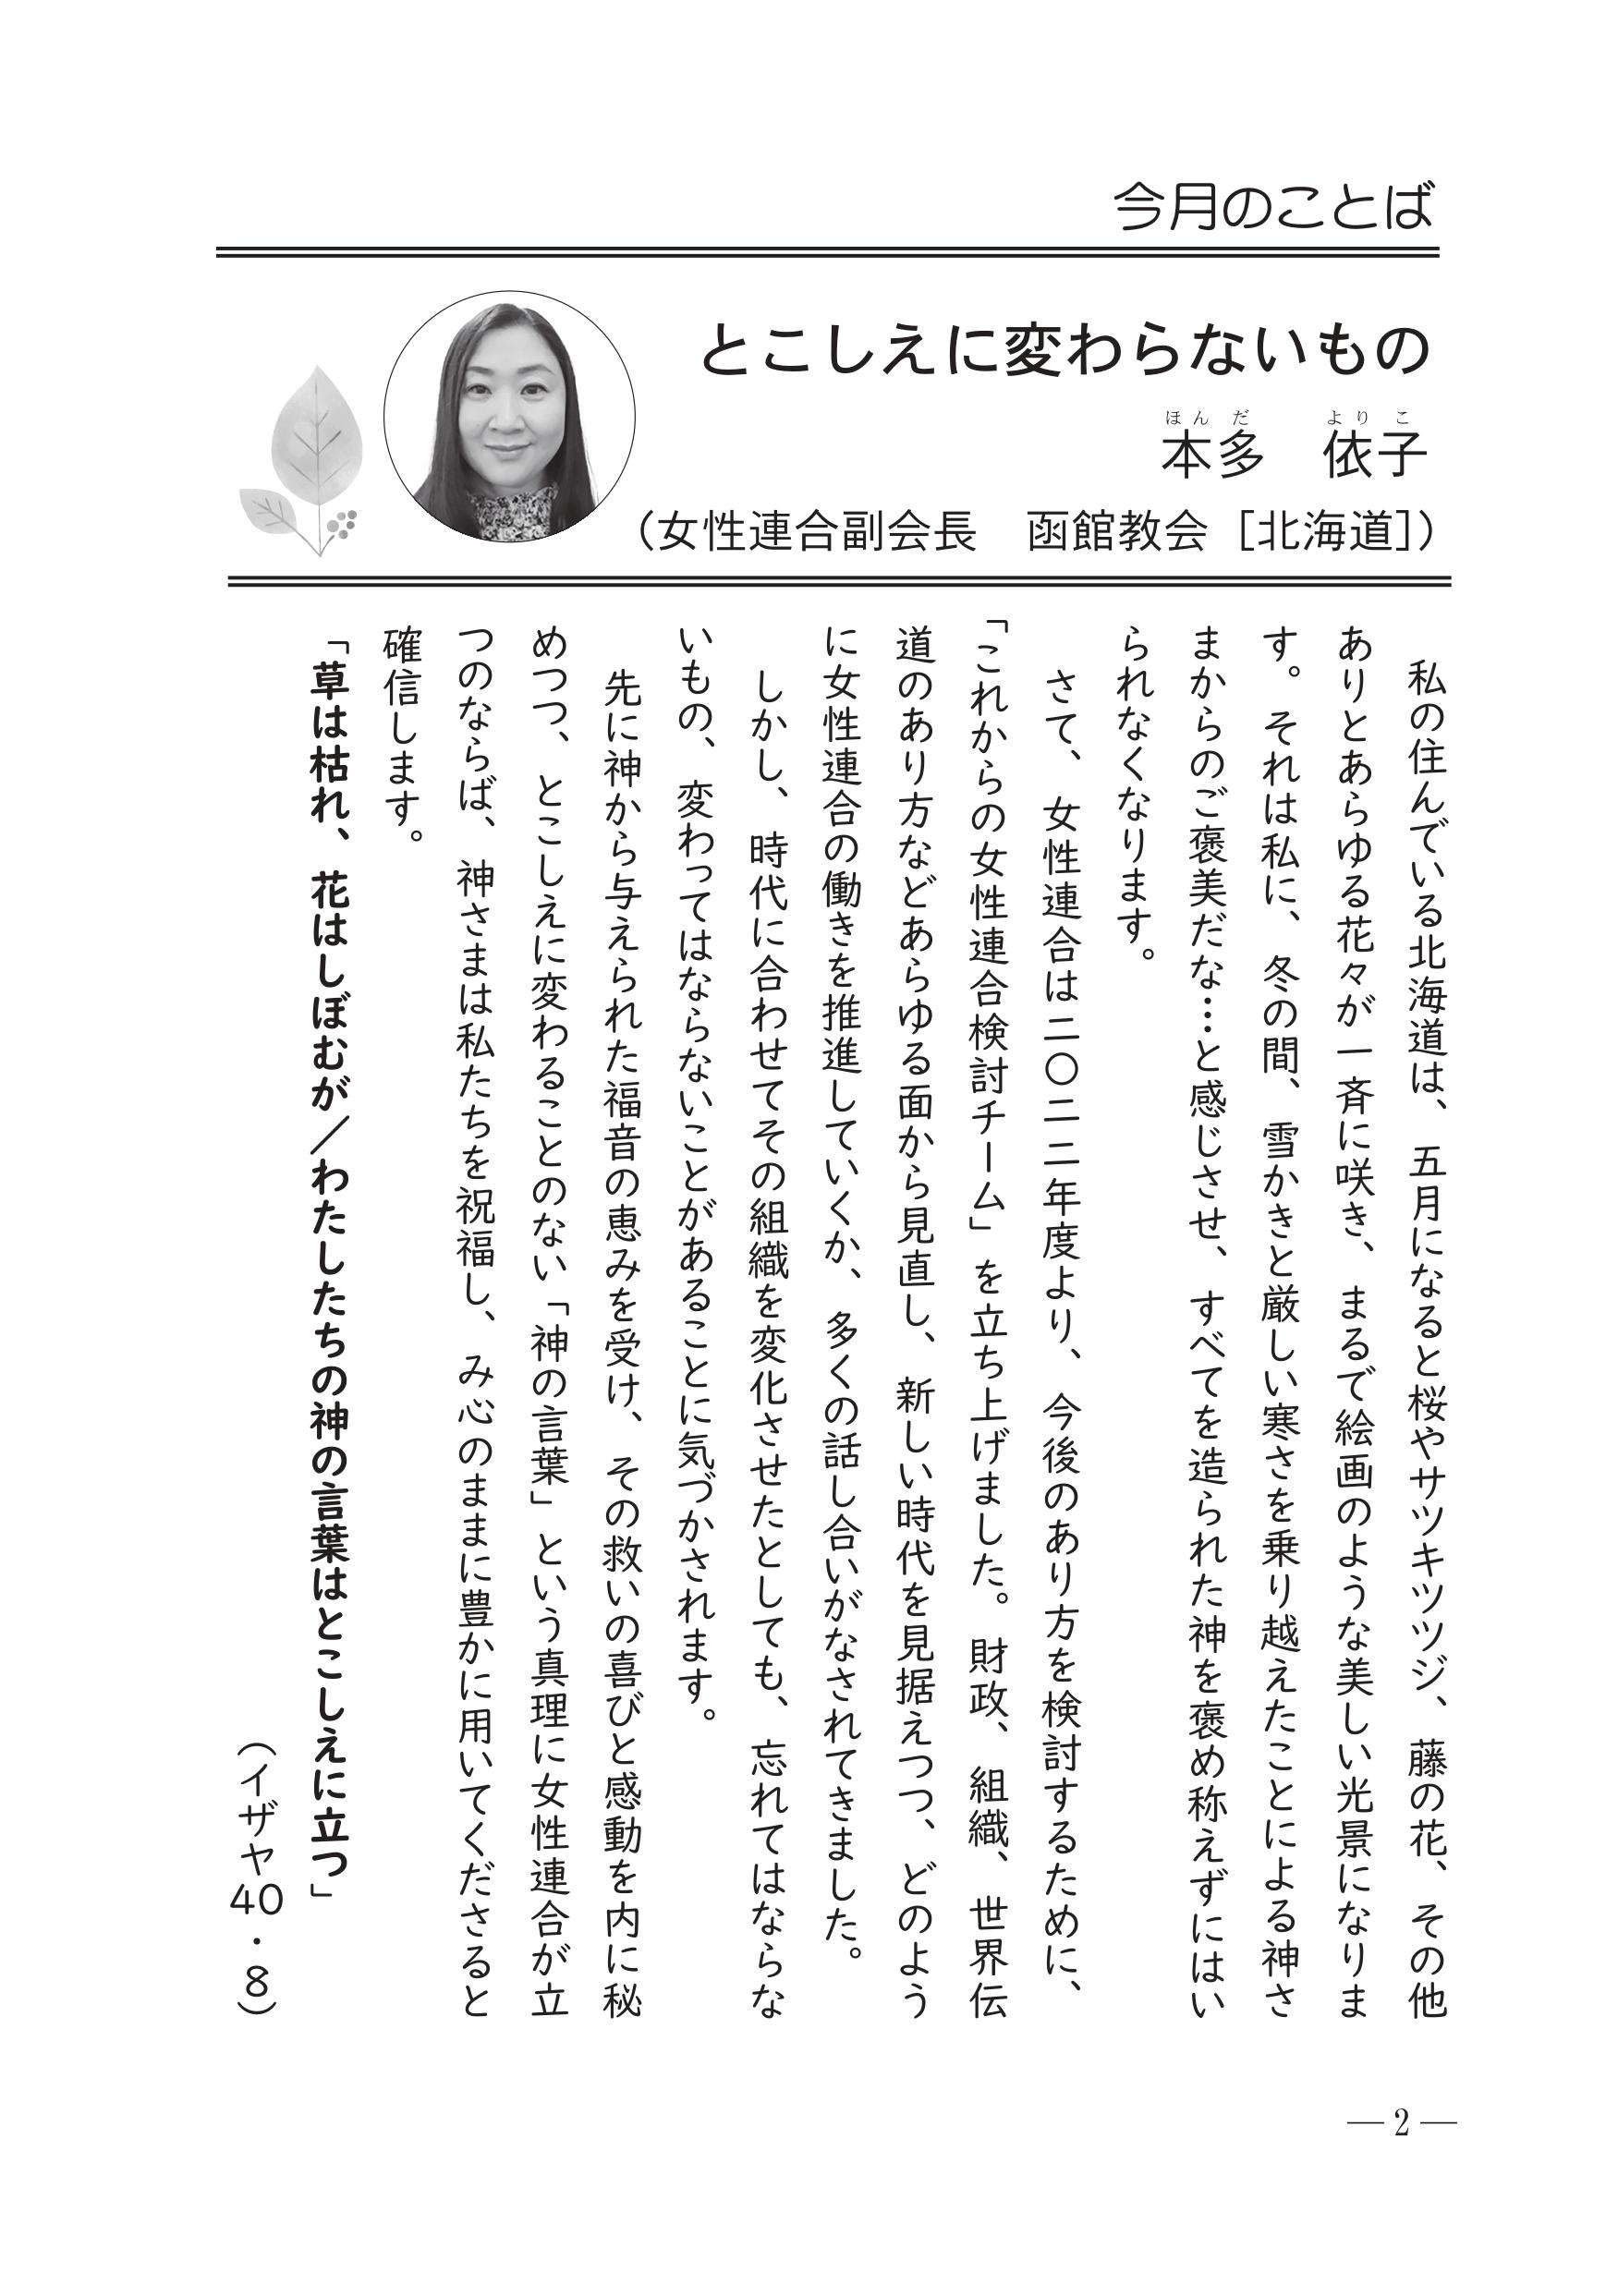 今月のことば
とこしえに変わらないもの
ほんだ　よりこ
本多　依子
（女性連合副会長　函館教会［北海道］）
私の住んでいる北海道は、五月になると桜やサツキツツジ、藤の花、その他
ありとあらゆる花々が一斉に咲き、まるで絵画のような美しい光景になりま
す。それは私に、冬の間、雪かきと厳しい寒さを乗り越えたことによる神さ
まからのご褒美だな…と感じさせ、すべてを造られた神を褒め称えずにはい
られなくなります。
さて、女性連合は二〇二二年度より、今後のあり方を検討するために、
「これからの女性連合検討チーム」を立ち上げました。財政、組織、世界伝
道のあり方などあらゆる面から見直し、新しい時代を見据えつつ、どのよう
に女性連合の働きを推進していくか、多くの話し合いがなされてきました。
しかし、時代に合わせてその組織を変化させたとしても、忘れてはならな
いもの、変わってはならないことがあることに気づかされます。
先に神から与えられた福音の恵みを受け、その救いの喜びと感動を内に秘
めつつ、とこしえに変わることのない「神の言葉」という真理に女性連合が立
つのならば、神さまは私たちを祝福し、み心のままに豊かに用いてくださると
確信します。
「草は枯れ、花はしぼむが／わたしたちの神の言葉はとこしえに立つ」
（イザヤ40・8）
― 2 ―